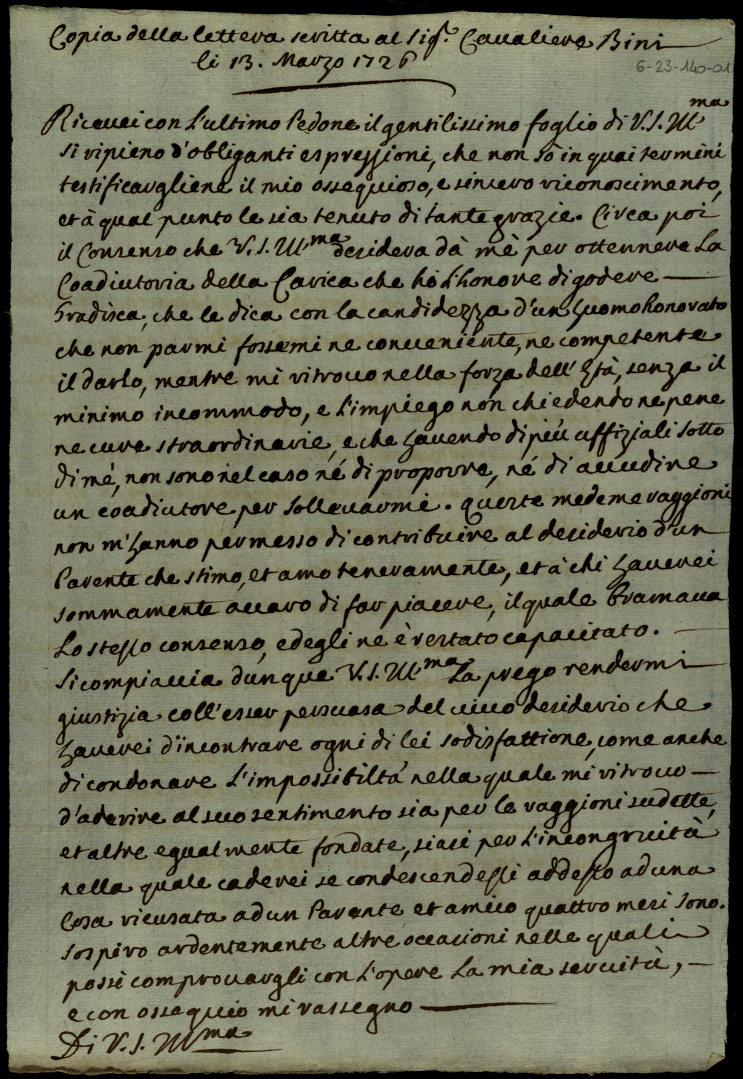 Copia della lettera scritta al Sigr. Cavaliere Bini
li 13. Marzo 1726
6-23-140-01
Riceuei con L'ultimo Pedone il gentilissimo foglio di V.S. Illma
si ripieno d'obliganti espressioni, che non sò in quai termini
testificargliene il mio ossequioso, e sincero riconoscimento,
et à qual punto le sia tenuto di tante grazie. Circa poi
il Consenso che V.S. Illma desidera dà mè per ottennere La
Coadiutoria della Carica che hò L'honore di godere
Gradisca, che le dica con la candidezza d'un Huomo honorato
che non parmi fossemi ne conueniente, ne competente
il darlo, mentre mi ritrouo nella forza dell'Età, senza il
minimo incommodo, e L'impiego non chiedendo ne pene
ne cure straordinarie, e che hauendo di più uffiziali sotto
di mé, non sono nel caso né di proporre, né di accudire
un coadiutore per Solleuarmi. Queste medeme raggioni
non m'hanno permesso di contribuire al desiderio d'un
Parente che stimo, et amo teneramente, et à chi hauerei
sommamente a caro di far piacere, il quale bramaua
Lo stesso consenso, ed egli ne è restato capacitato.
Si compiaccia dunque V.S. Illma La prego rendermi
giustizia coll'esser persuasa del viuo desiderio che
hauerei d'incontrare ogni di lei sodisfattione, come anche
di condonare L'impossibiltà nella quale mi ritrouo
d'aderire al suo sentimento sia per le raggioni sudette,
et altre egualmente fondate, siasi per L'incongruità
nella quale caderei se condescendessi addesso ad una
Cosa ricusata ad un Parente et amico quattro mesi sono.
Sospiro ardentemente altre occasioni nelle quali
possi comprouargli con L'opere La mia seruitù,
e con ossequio mi rassegno
Di V.S. Illma